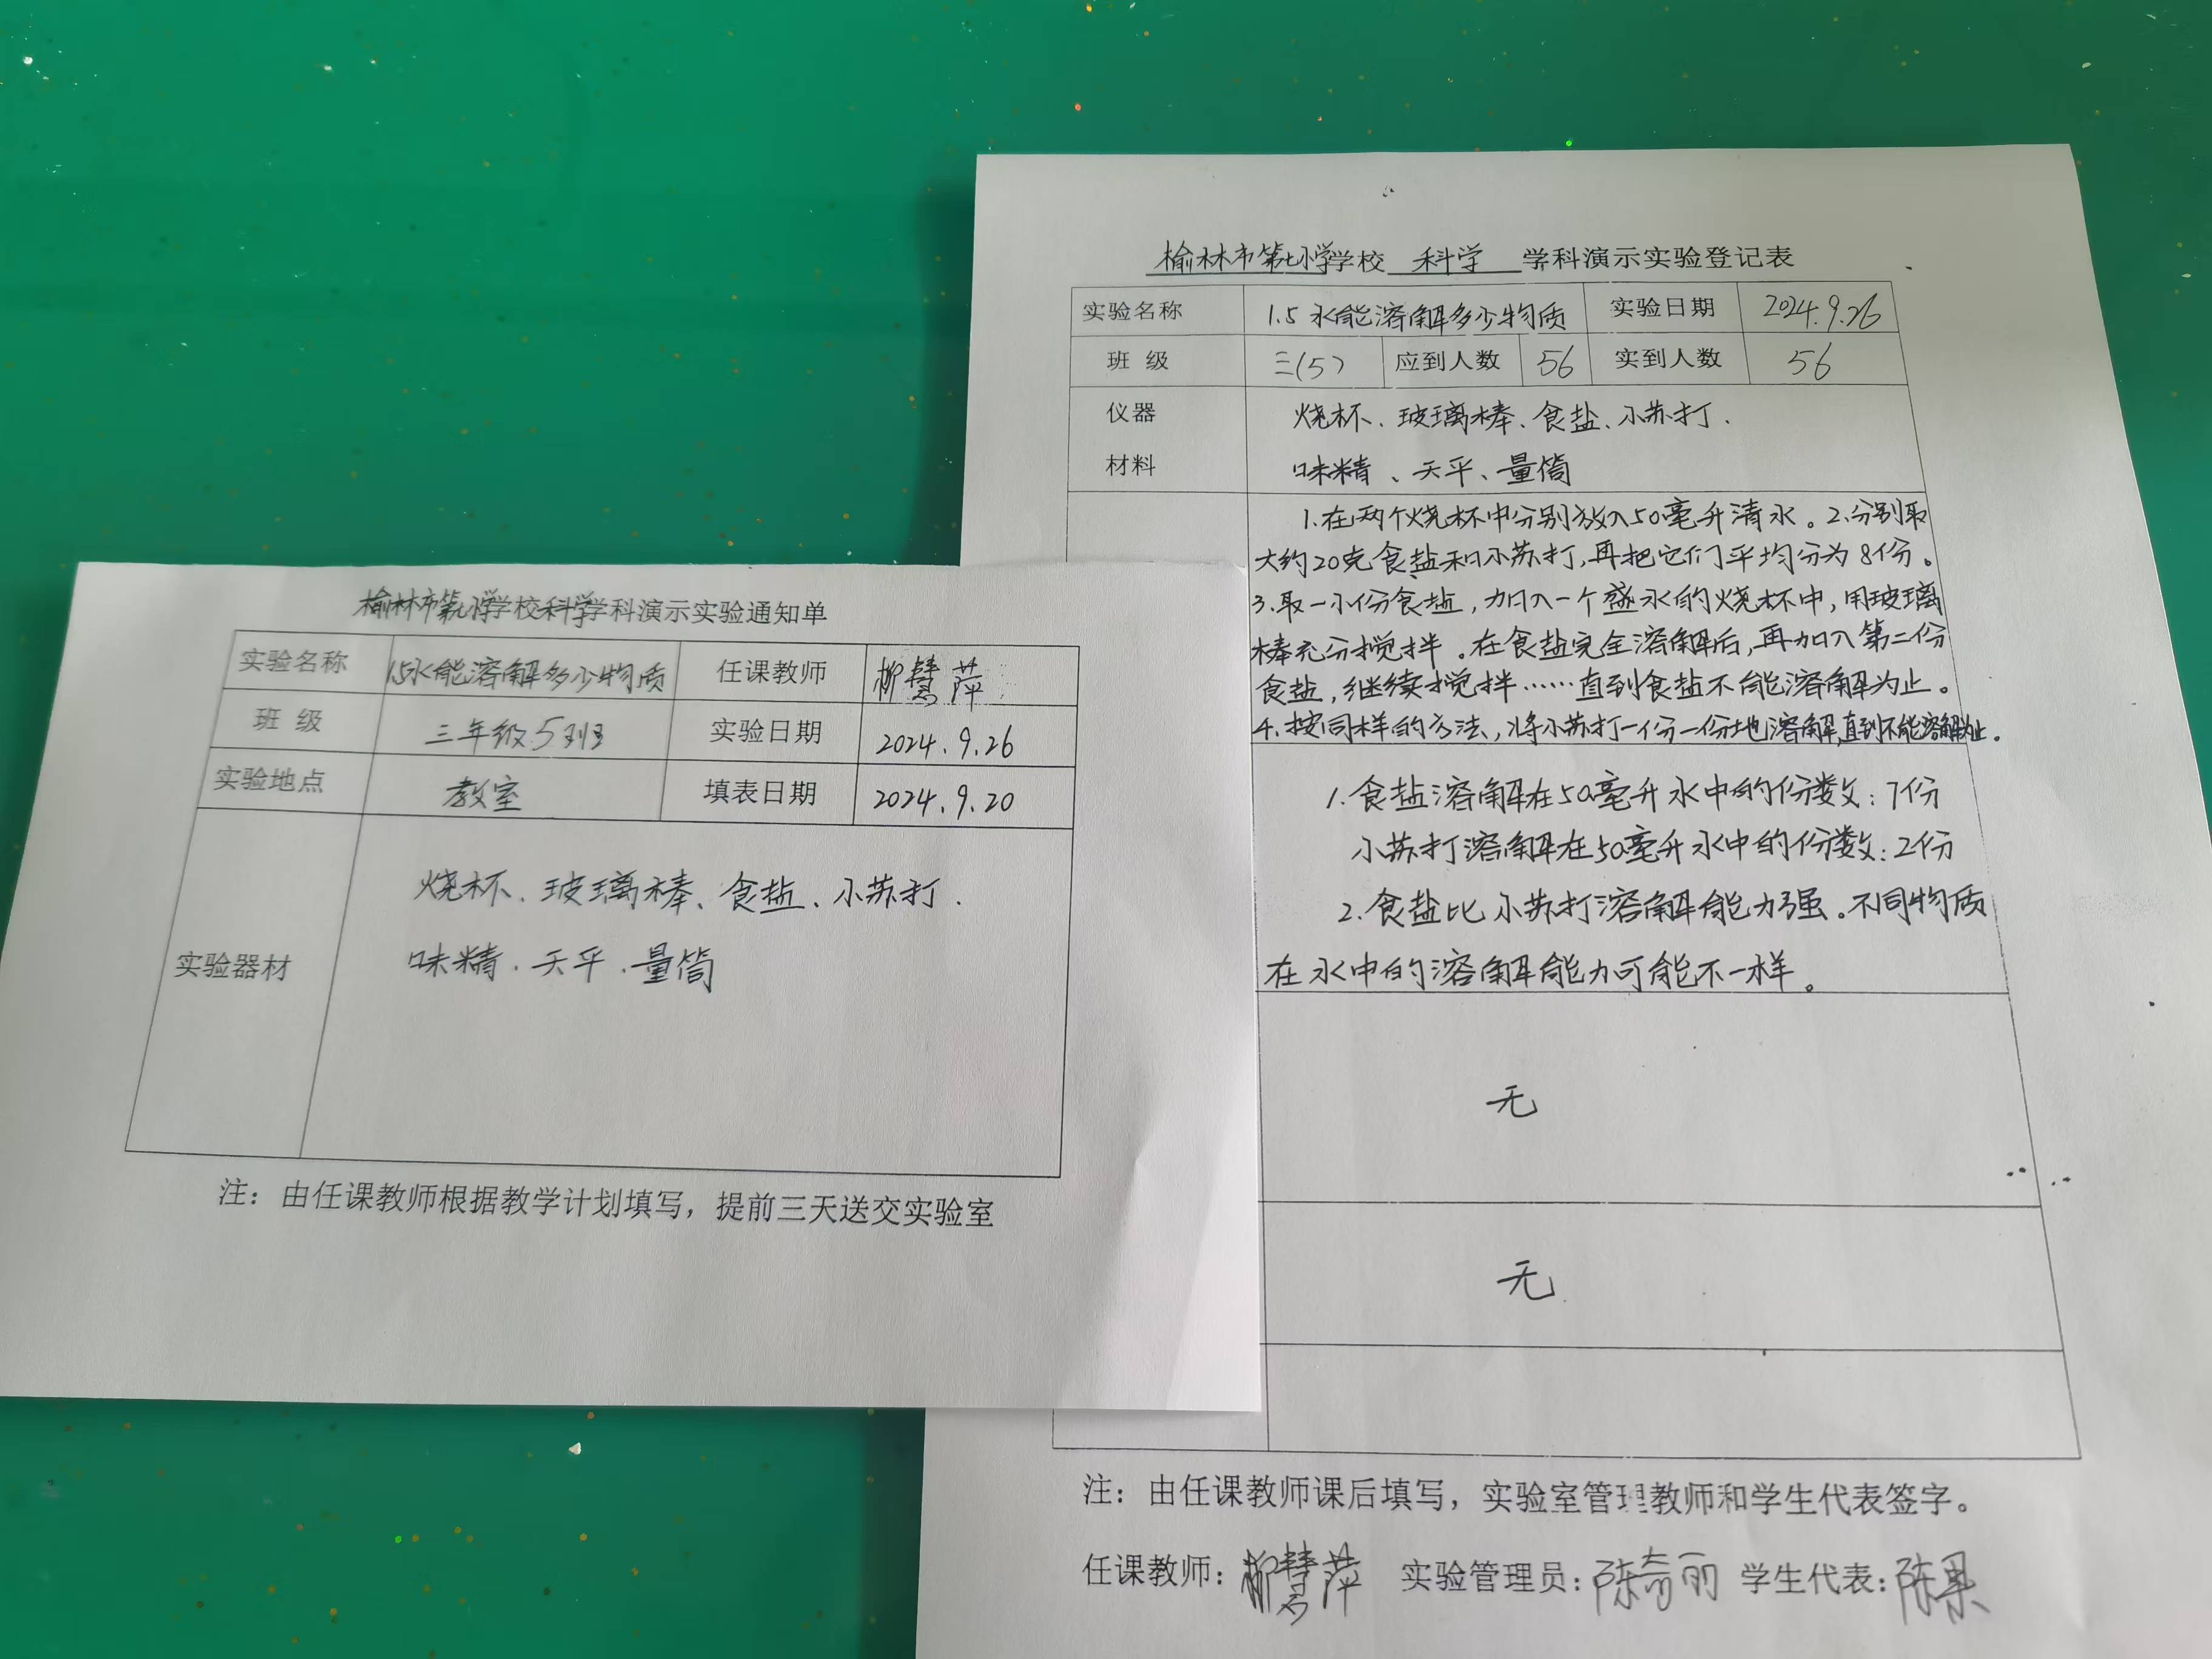 榆林市第七小学学校科学学科演示实验通知单
实验名称 1.5水能溶解多少物质 任课教师 柳慧萍
班 级 三年级5班 实验日期 2024.9.26
实验地点 教室 填表日期 2024.9.20
实验器材
烧杯、玻璃棒、食盐、小苏打、
味精、天平、量筒
注：由任课教师根据教学计划填写，提前三天送交实验室
榆林市第七小学学校 科学 学科演示实验登记表
实验名称 1.5 水能溶解多少物质 实验日期 2024.9.26
班 级 三(5) 应到人数 56 实到人数 56
仪器 烧杯、玻璃棒、食盐、小苏打、
材料 味精、天平、量筒
1.在两个烧杯中分别放入50毫升清水。2.分别取
大约20克食盐和小苏打,再把它们平均分为8份。
3.取一小份食盐,加入一个盛水的烧杯中,用玻璃
棒充分搅拌。在食盐完全溶解后,再加入第二份
食盐,继续搅拌……直到食盐不能溶解为止。
4.按同样的方法,将小苏打一份一份地溶解,直到不能溶解为止。
1.食盐溶解在50毫升水中的份数:7份
小苏打溶解在50毫升水中的份数:2份
2.食盐比小苏打溶解能力强。不同物质
在水中的溶解能力可能不一样。
无
无
注：由任课教师课后填写，实验室管理教师和学生代表签字。
任课教师：柳慧萍 实验管理员：陈奇丽 学生代表：陈果